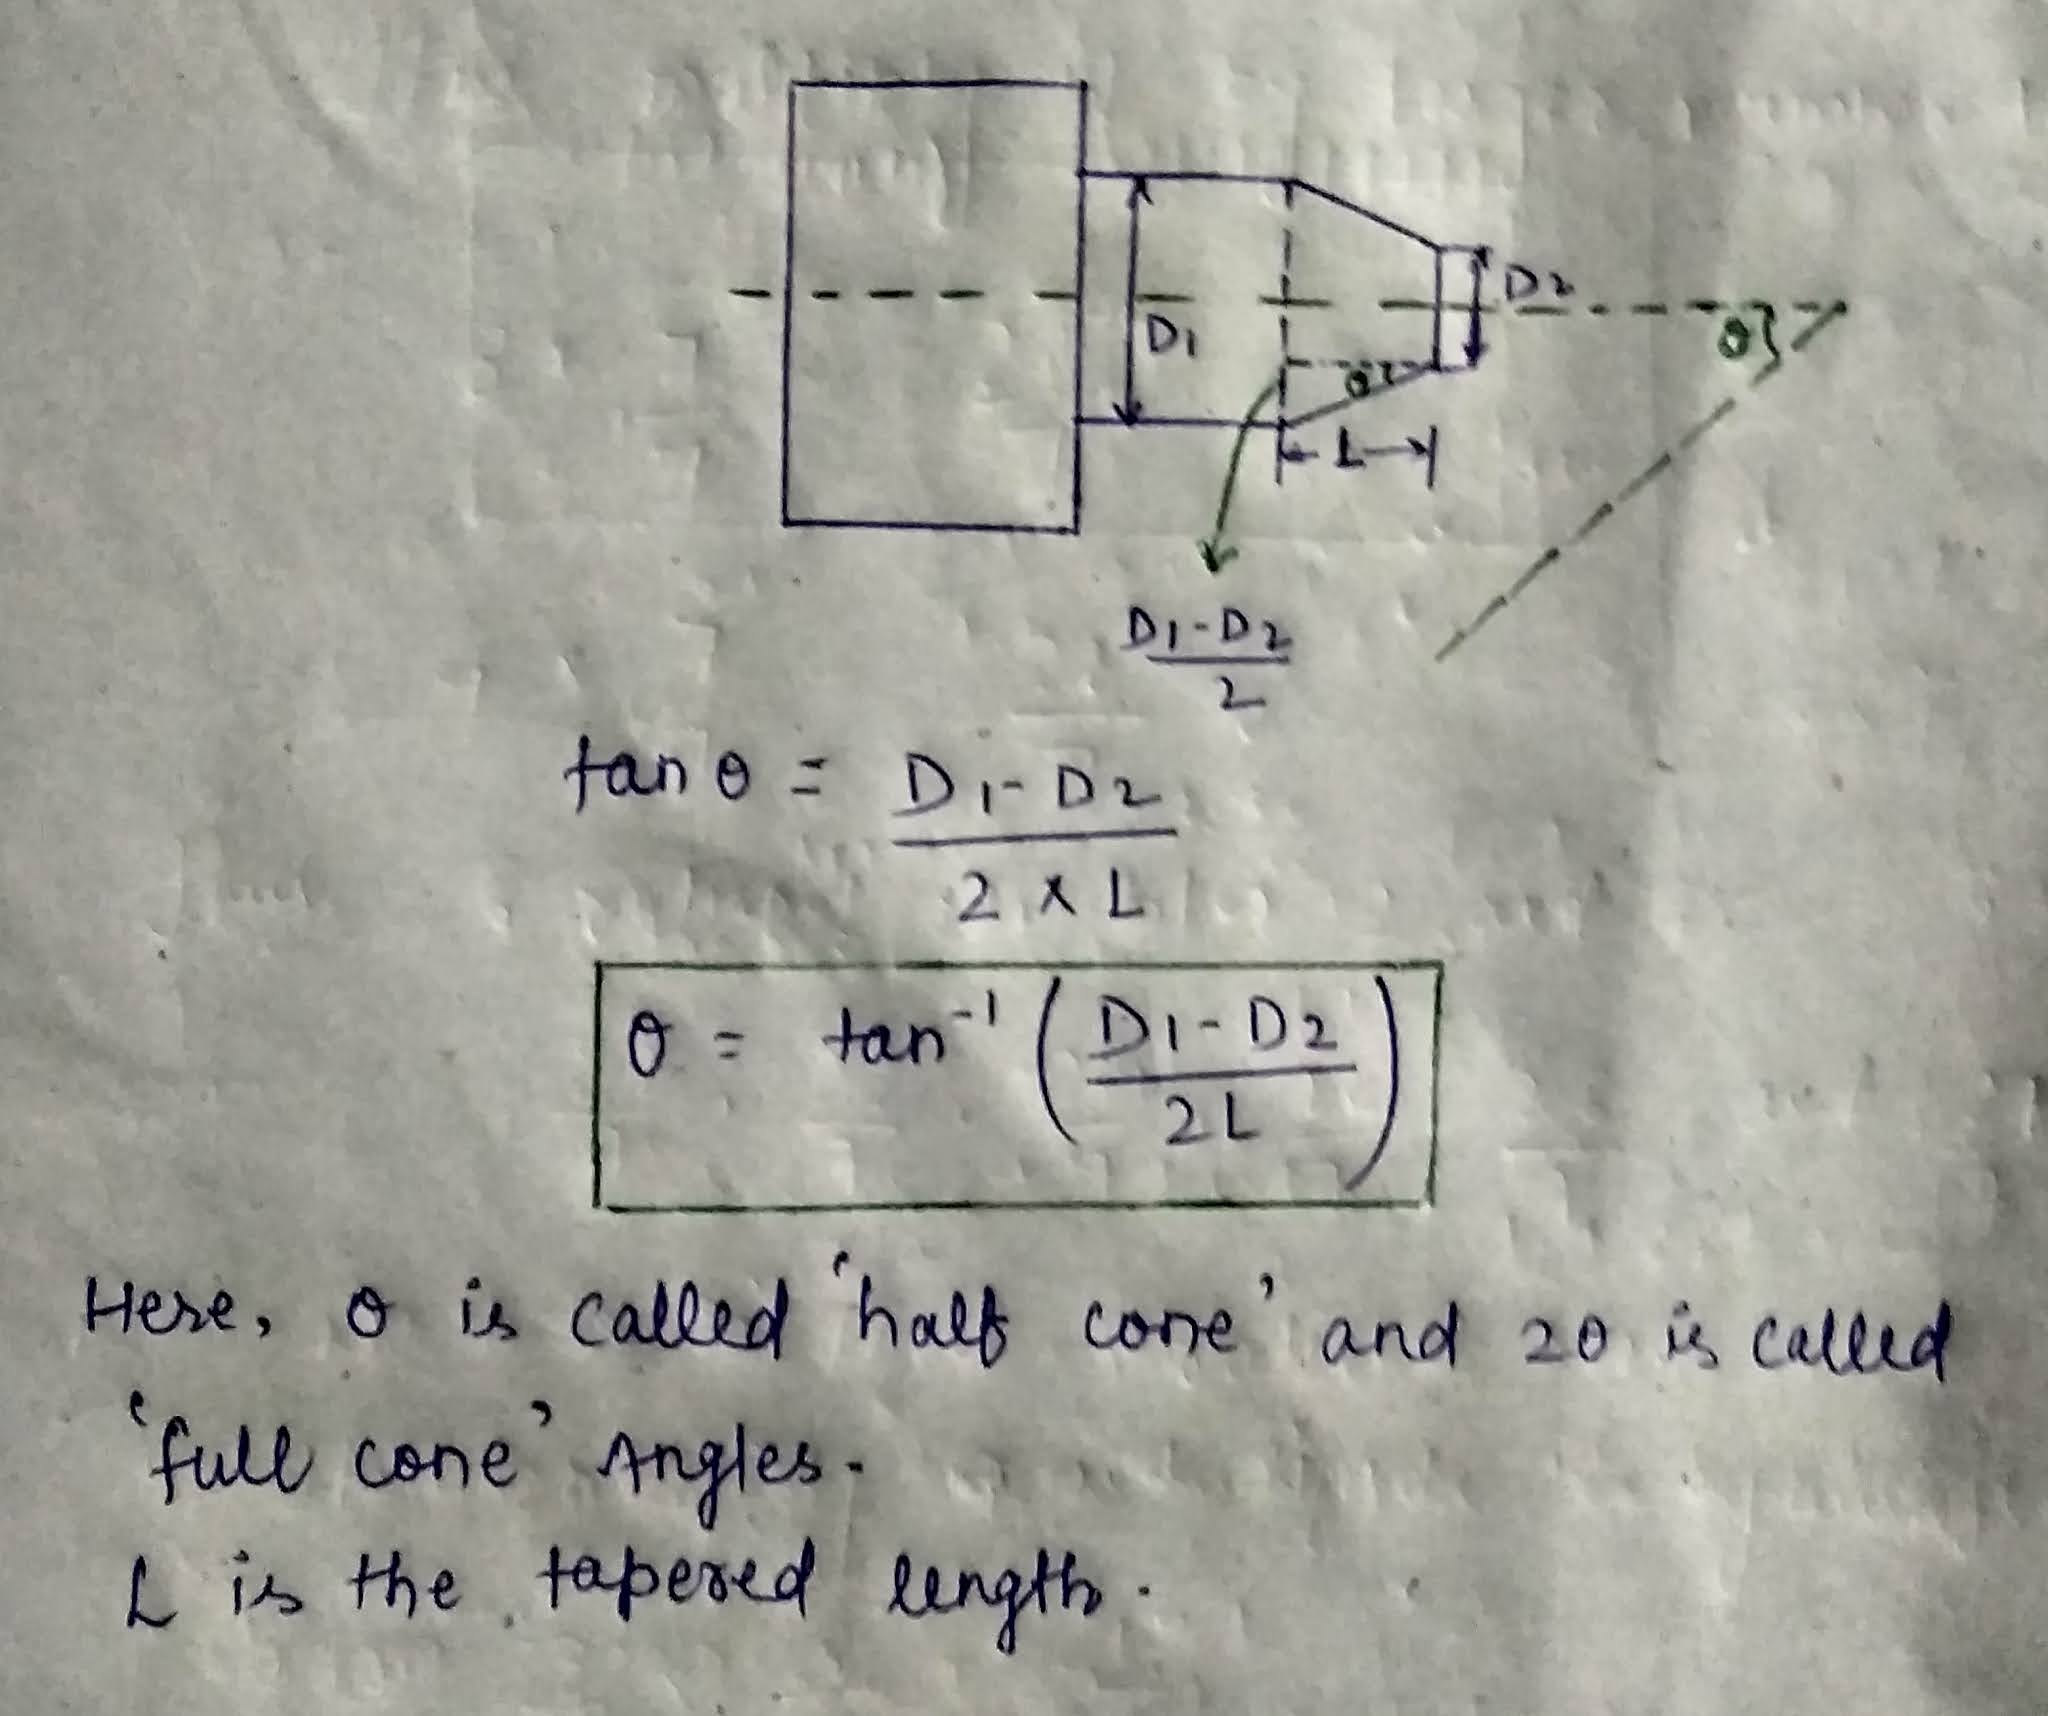 D1
D2
θ
θ
L
D1-D2
2
tan θ = D1-D2
2 x L
θ = tan⁻¹ (D1-D2
2L)
Here, θ is called 'half cone' and 2θ is called
'full cone' Angles.
L is the tapered length.